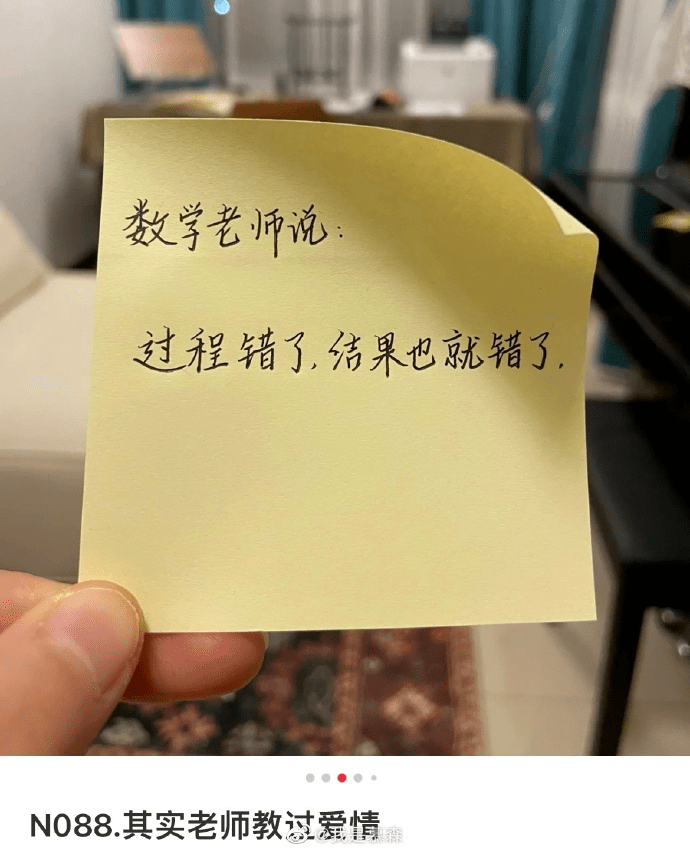 数学老师说:
过程错了,结果也就错了.
N088.其实老师教过爱情
@我是慕森